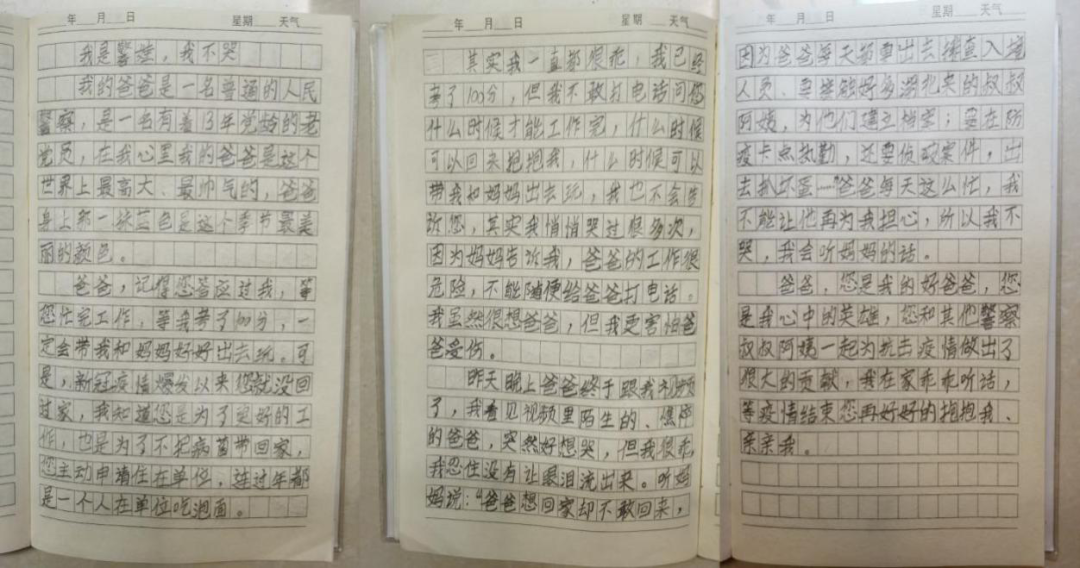 年 月 日 星期 天气
我是警娃，我不哭
我的爸爸是一名普通的人民
警察，是一名有着13年党龄的老
党员，在我心里我的爸爸是这个
世界上最高大、最帅气的，爸爸
身上那一抹蓝色是这个季节最美
丽的颜色。
爸爸，记得您答应过我，等
您忙完工作，等我考了100分，一
定会带我和妈妈好好出去玩。可
是，新冠疫情爆发以来您就没回
过家，我知道您是为了更好的工
作，也是为了不把病菌带回家，
您主动申请住在单位，连过年都
是一个人在单位吃泡面。
年 月 日 星期 天气
其实我一直都很乖，我已经
考了100分，但我不敢打电话问您
什么时候才能工作完，什么时候
可以回来抱抱我，什么时候可以
带我和妈妈出去玩，我也不会告
诉您，其实我悄悄哭过很多次，
因为妈妈告诉我，爸爸的工作很
危险，不能随便给爸爸打电话。
我虽然很想爸爸，但我更害怕爸
爸受伤。
昨天晚上爸爸终于跟我视频
了，我看见视频里陌生的、
的爸爸，突然好想哭，但我很乖，
我忍住没有让眼泪流出来。听妈
妈说：“爸爸想回家却不敢回来，
年 月 日 星期 天气
因为爸爸每天都要出去排查入境
人员、要接触好多湖北来的叔叔
阿姨，为他们建立档案；要在防
疫卡点执勤，还要侦破案件，出
去抓坏蛋—”爸爸每天这么忙，我
不能让他再为我担心，所以我不
哭，我会听妈妈的话。
爸爸，您是我的好爸爸，您
是我心中的英雄，您和其他警察
叔叔阿姨一起为抗击疫情做出了
很大的贡献，我在家乖乖听话，
等疫情结束您再好好的抱抱我、
亲亲我。